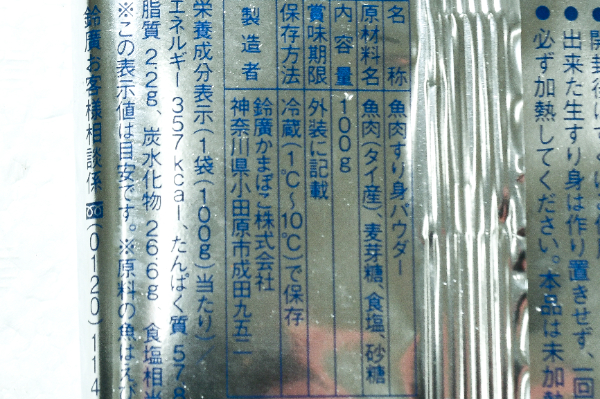 必ず加熱してください。本品は未加熱
出来た生すり身は作り置きせず、一回
名称 魚肉すり身パウダー
原材料名 魚肉(タイ産)、麦芽糖、食塩、砂糖
内容量 100g
賞味期限 外装に記載
保存方法 冷蔵(1℃〜10℃)で保存
製造者 鈴廣かまぼこ株式会社
神奈川県小田原市成田九五二
栄養成分表示(1袋(100g)当たり)
エネルギー 357kcal、たんぱく質 578
脂質 2.2g、炭水化物 26.6g 食塩相当
※この表示値は目安です。※原料の魚は
鈴廣お客様相談係 (0120)114